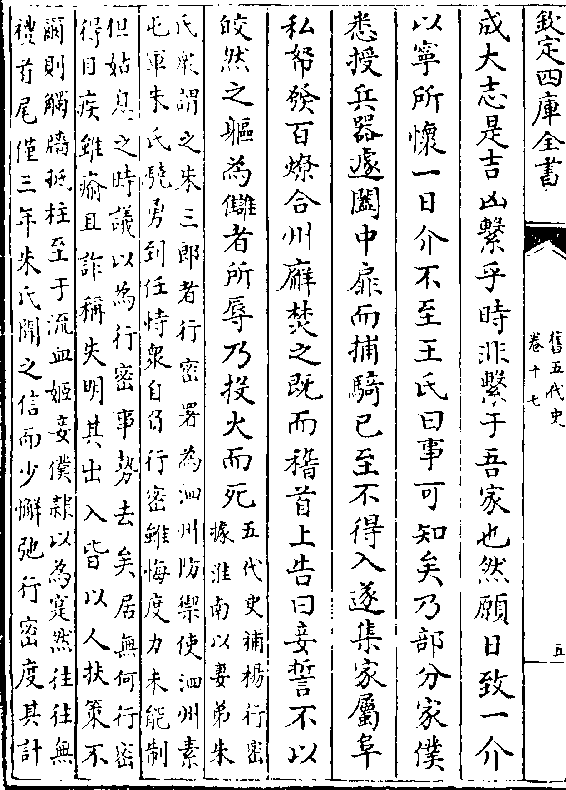 欽定四庫全書
舊五代史
卷十七
五
成大志是吉凶繫乎時非繫于吾家也然願日致一介
以寧所懷一日介不至王氏曰事可知矣乃部分家僕
悉授兵器遽闔中扉而捕騎已至不得入遂集家屬阜
私帑發百燎合州廨焚之既而稽首上告曰妾誓不以
皎然之軀為讎者所辱乃投火而死
五代史補楊行密
據淮南以妻弟朱
氏衆謂之朱三郎者行密署為泗州防禦使泗州素
屯軍朱氏驍勇到任恃衆自負行密雖悔度力未能制
但姑息之時議以為行密事勢去矣居無何行密
得目疾雖瘉且詐稱失明其出入皆以人扶策不
爾則觸牆抵柱至于流血姬妾僕隸以為寔然往往無
禮首尾僅三年朱氏聞之信而少懈弛行密度其計